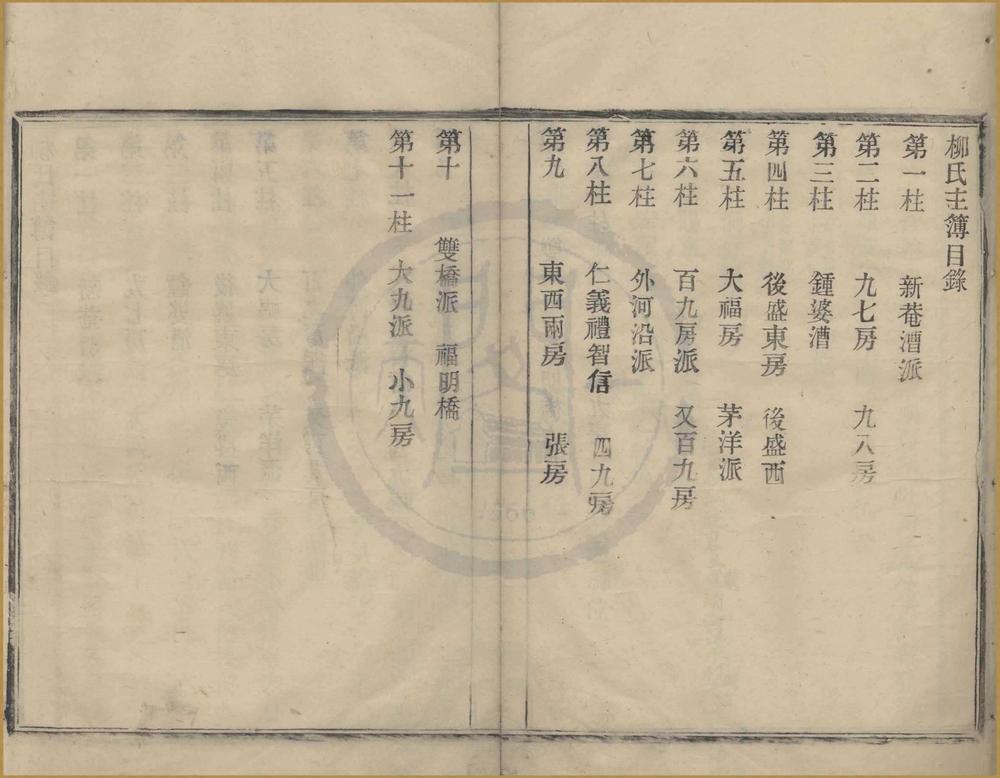 柳氏主簿目錄
第一柱 新菴漕派
第二柱 九七房 九八房
第三柱 鍾婆漕
第四柱 後盛東房 後盛西
第五柱 大福房 茅洋派
第六柱 百九房派 又百九房
第七柱 外河沿派
第八柱 仁義禮智信 四九房
第九 東西兩房 張房
第十 雙橋派 福明橋
第十一柱 大九派下小九房